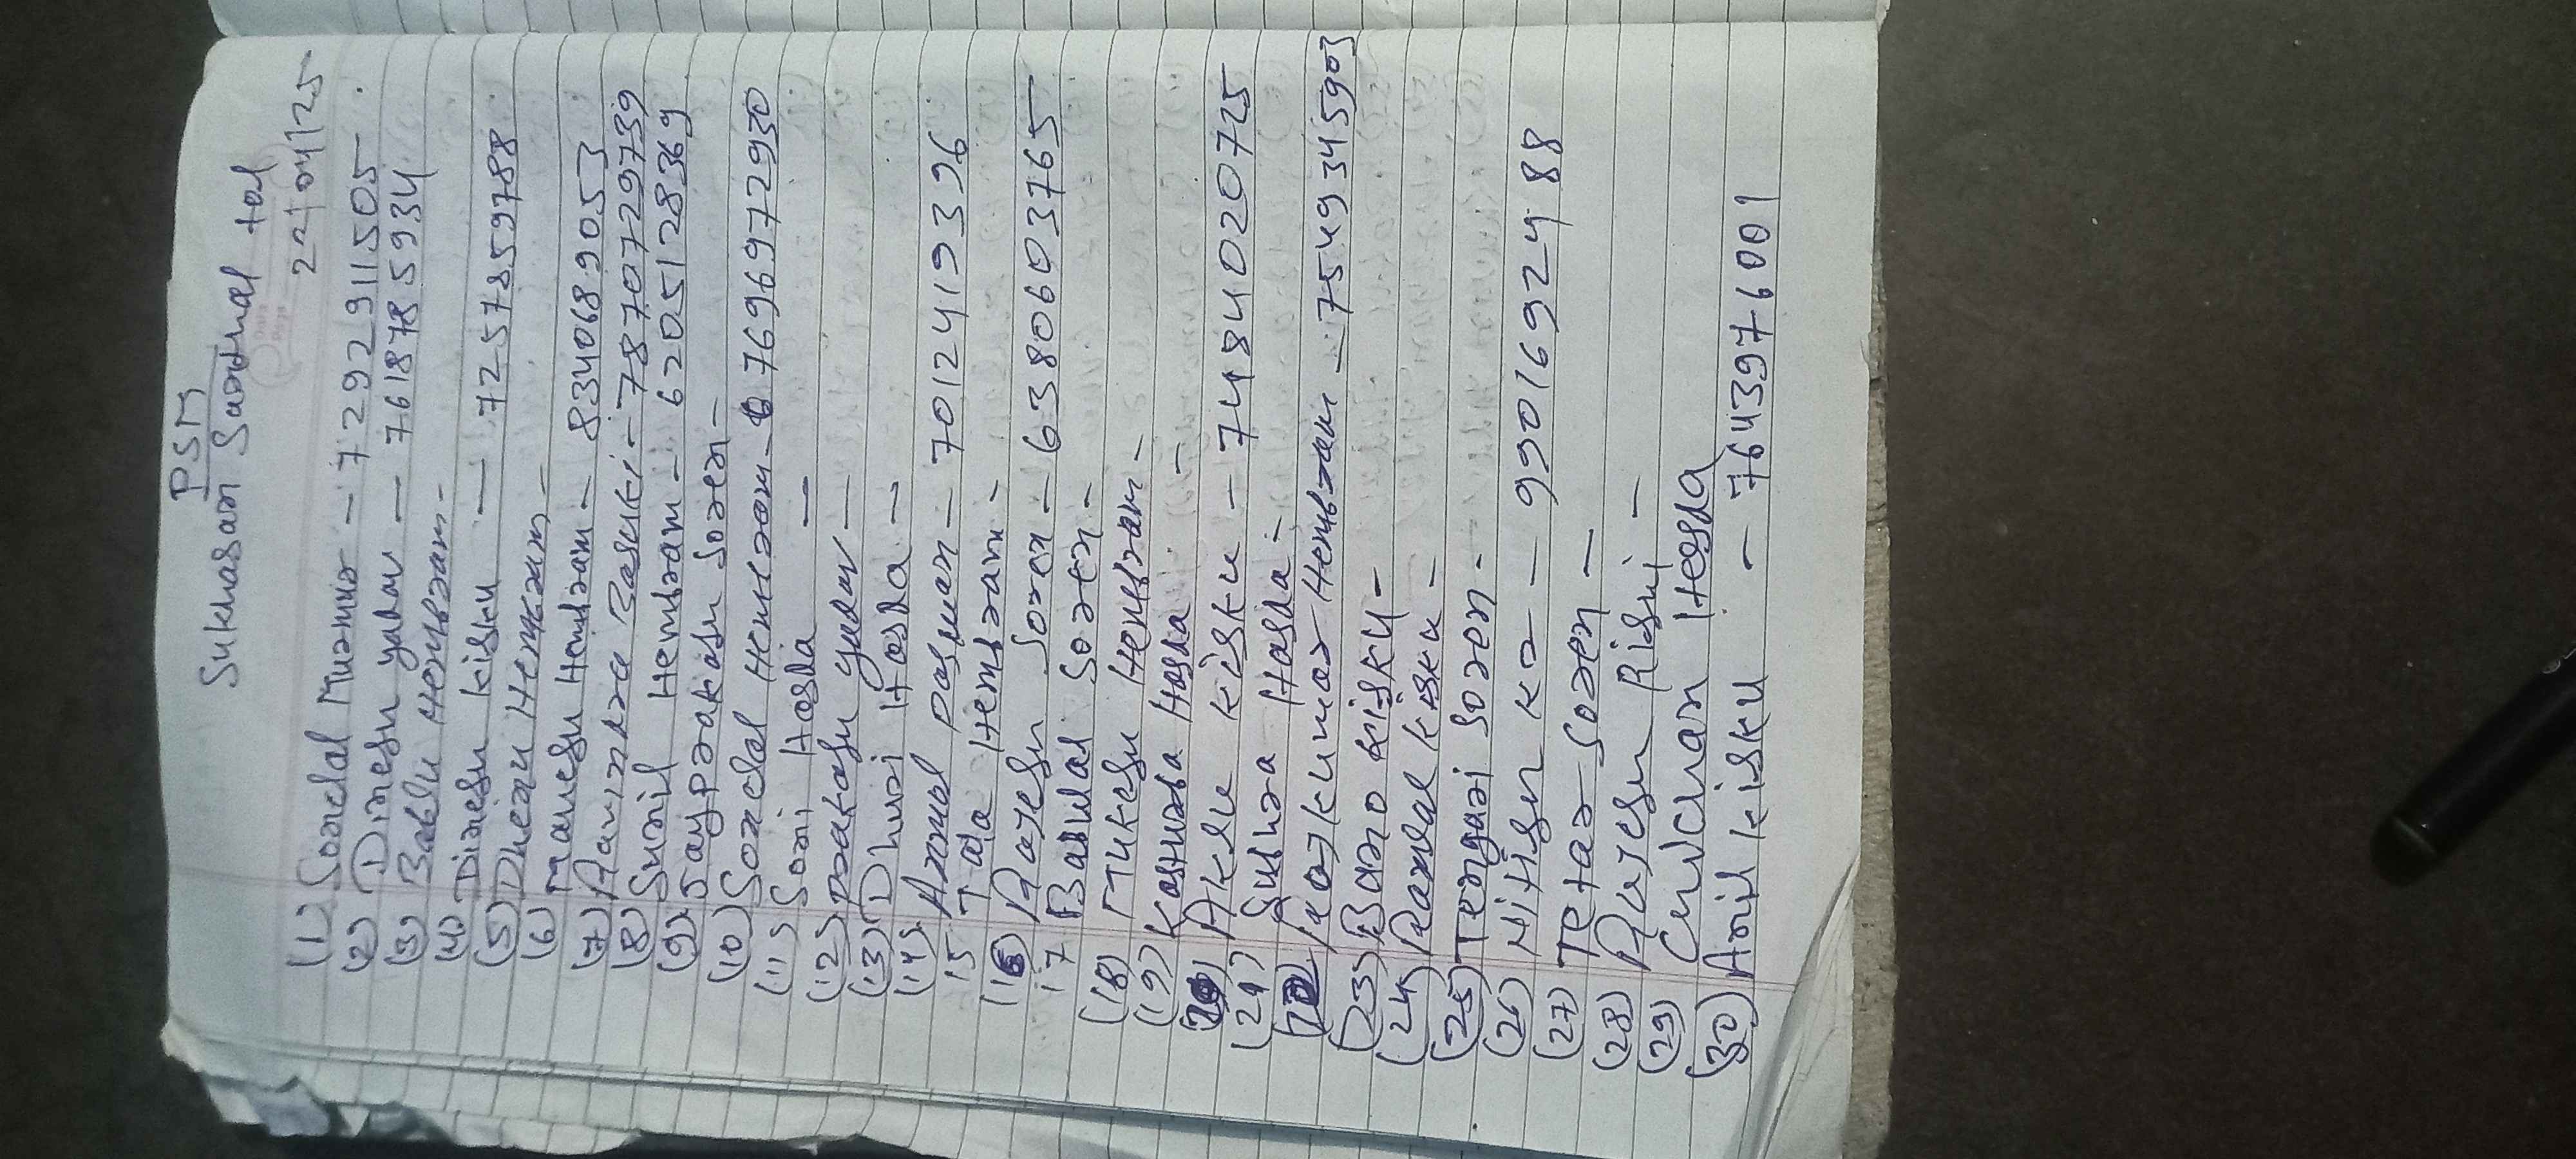 PSM
Sukhasan Santhal tol
22/04/25
(1) Sonelal Murmur - 7292911505
(2) Dinesh yadav - 7618785934
(3) Bablu Hembram -
(4) Dinesh kisku - 7257859788
(5) Dhenu Hembram -
(6) Manesh Hembram - 8340689053
(7) Ravindra Basuki - 7870729739
(8) Sunil Hembram - 6205128369
(9) Jayprakash Soren -
(10) Sonelal Hembram - 7696972930
(11) Soni Hasda -
(12) prakash yadav -
(13) Dhuri Hasda -
(14) Anmol paswan - 7012419396
15 Tala Hembram -
(16) Rajesh Soren - 6380603765
17 Babulal Soren -
(18) Mukesh Hembram -
(19) Kasturba Hasda -
(20) Aklu kisku - 7484020725
(21) Sukhra Hasda -
(22) Rajkumar Hembram - 7549345903
(23) Bano kisku -
(24) Ramlal kisku -
(25) Tengari Soren -
(26) Nitish kr - 9901692488
(27) Tetar Soren -
(28) Rajesh Rishi -
(29) Churchan Hesda
(30) Anil kisku - 7643976001